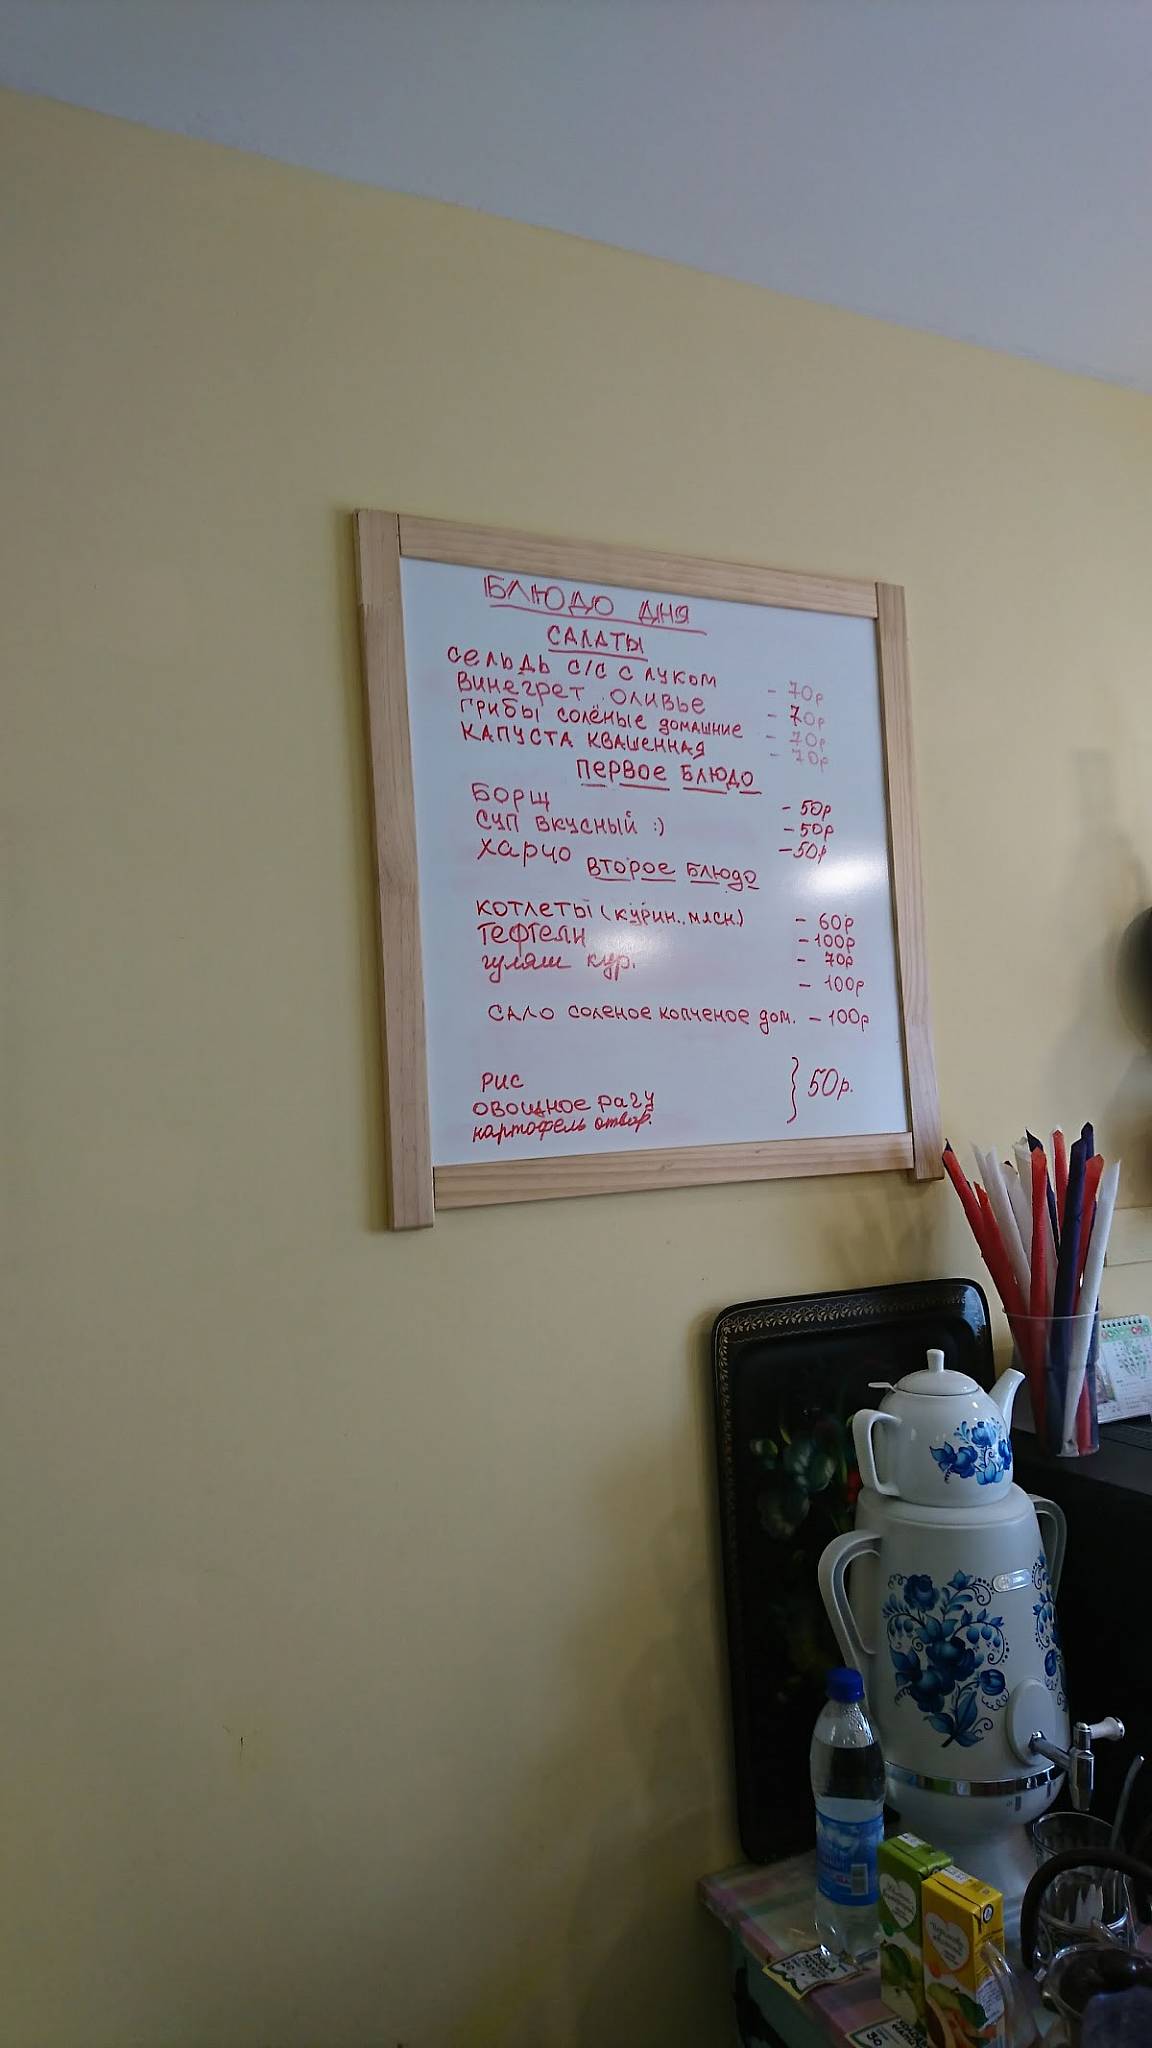 БЛЮДО ДНЯ
САЛАТЫ
СЕЛЬДЬ С/С С ЛУКОМ - 70р
ВИНЕГРЕТ. ОЛИВЬЕ - 70р
ГРИБЫ СОЛЁНЫЕ ДОМАШНИЕ - 70р
КАПУСТА КВАШЕННАЯ - 70р
ПЕРВОЕ БЛЮДО
БОРЩ - 50р
СУП ВКУСНЫЙ :) - 50р
ХАРЧО - 50р
ВТОРОЕ БЛЮДО
КОТЛЕТЫ (КУРИН., МЯСН.) - 60р
ТЕФТЕЛИ - 100р
гуляш кур. - 70р
- 100р
САЛО СОЛЕНОЕ КОПЧЕНОЕ дом. - 100р
РИС
ОВОЩНОЕ РАГУ } 50р.
картофель отвар.